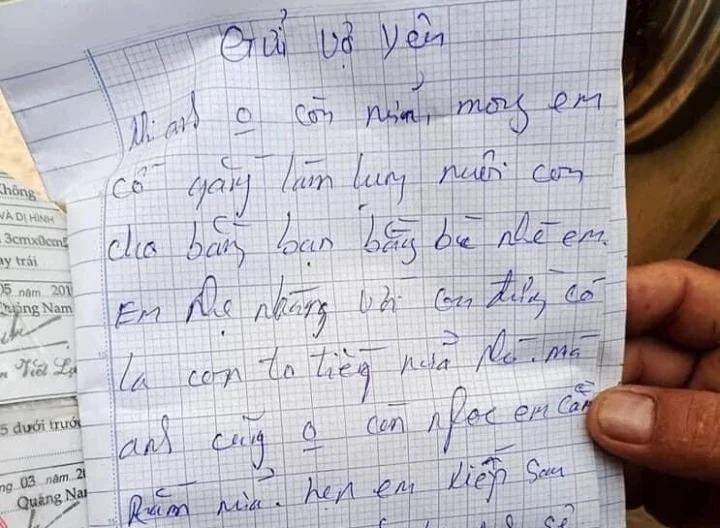 Gửi vợ yên
Khi anh o còn nữa, mong em
cố gắng làm lụng nuôi con
cho bằng bạn bằng bè nhé em.
Em nhẹ nhàng với con đừng có
la con to tiếng nữa nhé. mà
anh cũng o còn nghe em cằn
nhằn nữa. hẹn em kiếp sau
Không
VÀ DỊ HÌNH
3cmx0cm5
ay trái
05 năm 201
Quảng Nam
5 dưới trước
ng 03 năm 2
Quảng Na